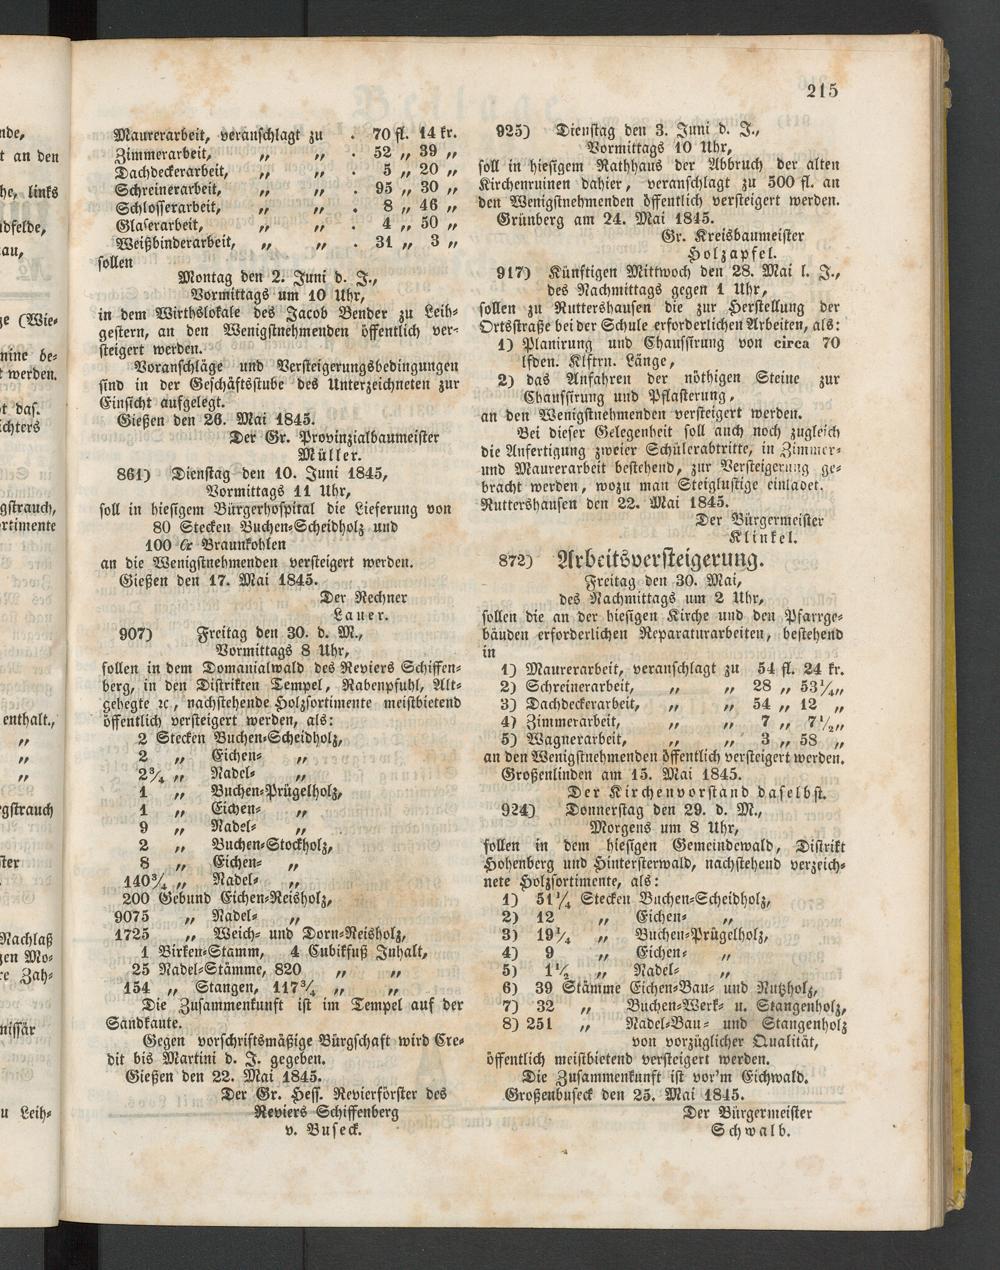 215
Maurerarbeit, veranschlagt zu . 70 fl. 14 kr.
Zimmerarbeit, „ „ . 52 „ 39 „
Dachdeckerarbeit, „ „ . 5 „ 20 „
Schreinerarbeit, „ „ . 95 „ 30 „
Schlosserarbeit, „ „ . 8 „ 46 „
Glaserarbeit, „ „ . 4 „ 50 „
Weißbinderarbeit, „ „ . 31 „ 3 „
sollen
Montag den 2. Juni d. J.,
Vormittags um 10 Uhr,
in dem Wirthslokale des Jacob Bender zu Leih-
gestern, an den Wenigstnehmenden öffentlich ver-
steigert werden.
Voranschläge und Versteigerungsbedingungen
sind in der Geschäftsstube des Unterzeichneten zur
Einsicht aufgelegt.
Gießen den 26. Mai 1845.
Der Gr. Provinzialbaumeister
Müller.
861) Dienstag den 10. Juni 1845,
Vormittags 11 Uhr,
soll in hiesigem Bürgerhospital die Lieferung von
80 Stecken Buchen-Scheidholz und
100 Ctr Braunkohlen
an die Wenigstnehmenden versteigert werden.
Gießen den 17. Mai 1845.
Der Rechner
Lauer.
907) Freitag den 30. d. M.,
Vormittags 8 Uhr,
sollen in dem Domanialwald des Reviers Schiffen-
berg, in den Distrikten Tempel, Rabenpfuhl, Alt-
gehegte ꝛc, nachstehende Holzsortimente meistbietend
öffentlich versteigert werden, als:
2 Stecken Buchen-Scheidholz,
2 „ Eichen- „
2¾ „ Nadel- „
1 „ Buchen-Prügelholz,
1 „ Eichen- „
9 „ Nadel- „
2 „ Buchen-Stockholz,
8 „ Eichen- „
140¾ „ Nadel- „
200 Gebund Eichen-Reisholz,
9075 „ Nadel- „
1725 „ Weich- und Dorn-Reisholz,
1 Birken-Stamm, 4 Cubikfuß Inhalt,
25 Nadel-Stämme, 820 „ „
154 „ Stangen, 117¾ „ „
Die Zusammenkunft ist im Tempel auf der
Sandkaute.
Gegen vorschriftsmäßige Bürgschaft wird Cre-
dit bis Martini d. J. gegeben.
Gießen den 22. Mai 1845.
Der Gr. Hess. Revierförster des
Reviers Schiffenberg
v. Buseck.
925) Dienstag den 3. Juni d. J.,
Vormittags 10 Uhr,
soll in hiesigem Rathhaus der Abbruch der alten
Kirchenruinen dahier, veranschlagt zu 500 fl. an
den Wenigstnehmenden öffentlich versteigert werden.
Grünberg am 24. Mai 1845.
Gr. Kreisbaumeister
Holzapfel.
917) Künftigen Mittwoch den 28. Mai l. J.,
des Nachmittags gegen 1 Uhr,
sollen zu Ruttershausen die zur Herstellung der
Ortsstraße bei der Schule erforderlichen Arbeiten, als:
1) Planirung und Chaussirung von circa 70
lfden. Klftrn. Länge,
2) das Anfahren der nöthigen Steine zur
Chaussirung und Pflasterung,
an den Wenigstnehmenden versteigert werden.
Bei dieser Gelegenheit soll auch noch zugleich
die Anfertigung zweier Schülerabtritte, in Zimmer-
und Maurerarbeit bestehend, zur Versteigerung ge-
bracht werden, wozu man Steiglustige einladet.
Ruttershausen den 22. Mai 1845.
Der Bürgermeister
Klinkel.
872) Arbeitsversteigerung.
Freitag den 30. Mai,
des Nachmittags um 2 Uhr,
sollen die an der hiesigen Kirche und den Pfarrge-
bäuden erforderlichen Reparaturarbeiten, bestehend
in
1) Maurerarbeit, veranschlagt zu 54 fl. 24 kr.
2) Schreinerarbeit, „ „ 28 „ 53¼ „
3) Dachdeckerarbeit, „ „ 54 „ 12 „
4) Zimmerarbeit, „ „ 7 „ 7½ „
5) Wagnerarbeit, „ „ 3 „ 58 „
an den Wenigstnehmenden öffentlich versteigert werden.
Großenlinden am 15. Mai 1845.
Der Kirchenvorstand daselbst.
924) Donnerstag den 29. d. M.,
Morgens um 8 Uhr,
sollen in dem hiesigen Gemeindewald, Distrikt
Hohenberg und Hintersterwald, nachstehend verzeich-
nete Holzsortimente, als:
1) 51¼ Stecken Buchen-Scheidholz,
2) 12 „ Eichen- „
3) 19¼ „ Buchen-Prügelholz,
4) 9 „ Eichen- „
5) 1½ „ Nadel- „
6) 39 Stämme Eichen-Bau- und Nutzholz,
7) 32 „ Buchen-Werk- u. Stangenholz,
8) 251 „ Nadel-Bau- und Stangenholz
von vorzüglicher Qualität,
öffentlich meistbietend versteigert werden.
Die Zusammenkunft ist vor'm Eichwald.
Großenbuseck den 25. Mai 1845.
Der Bürgermeister
Schwalb.